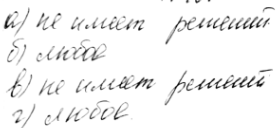 а) не имеет решений
б) любое
в) не имеет решений
г) любое.